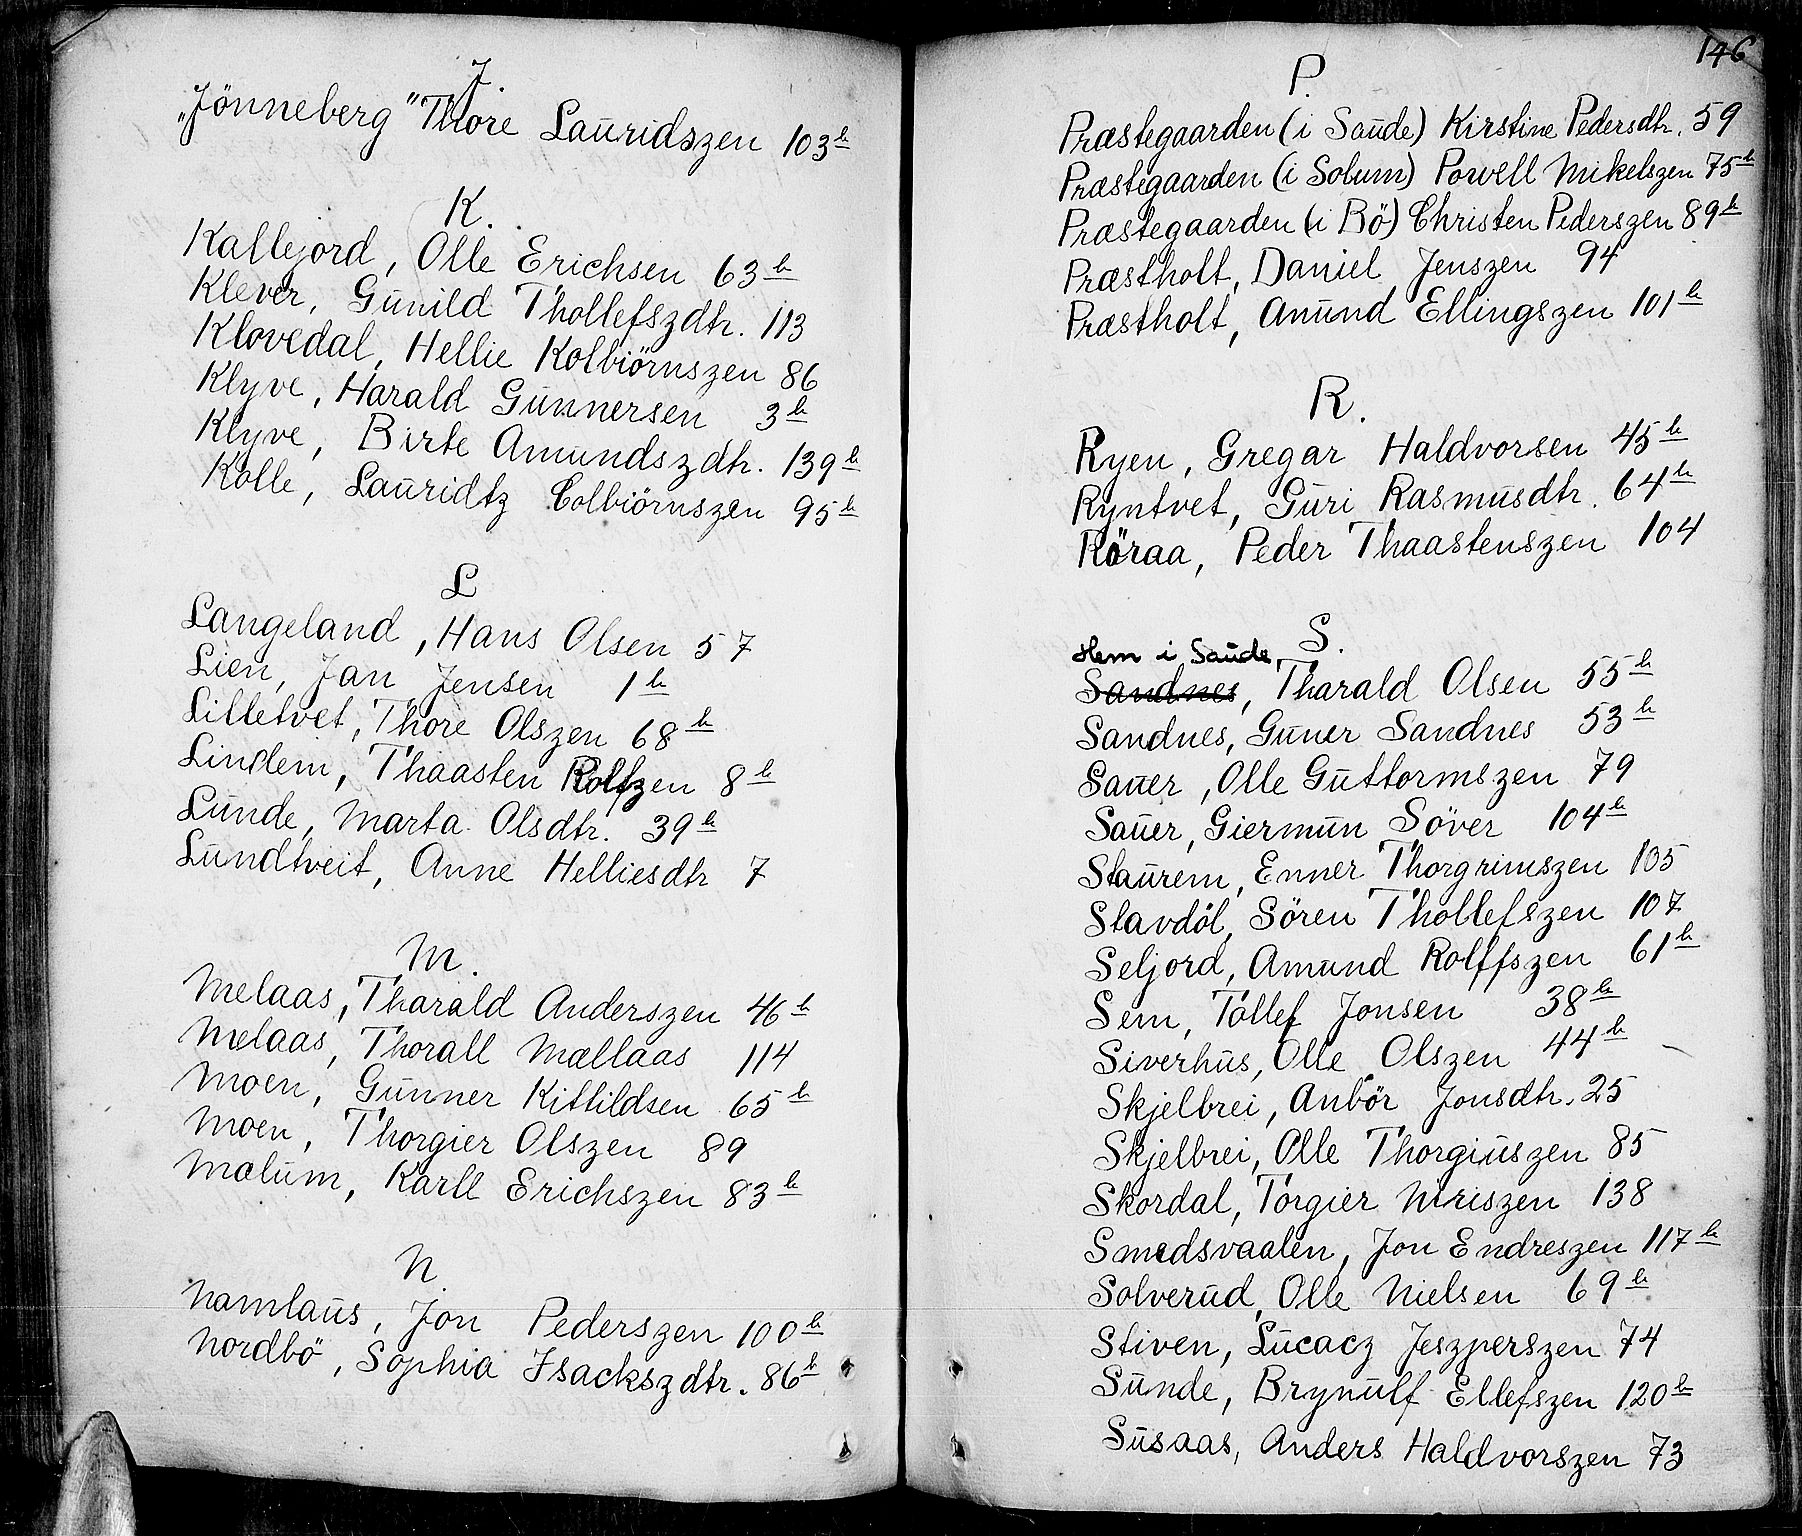 J.
"Jönneberg" Thore Lauridszen 103b
K.
Kallejord, Olle Erichsen 63b
Klever, Gunild Thollefszdtr. 113
Klovedal, Hellie Kolbiörnszen 86
Klyve, Harald Gunnersen 3b
Klyve, Birte Amundszdtr. 139b
Kolle, Lauridtz Colbiörnszen 95b
L
Langeland, Hans Olsen 57
Lien, Jan Jensen 1b
Lilletvet, Thore Olszen 68b
Lindem, Thaasten Rolfzen 8b
Lunde, Marta Olsdtr. 39b
Lundtveit, Anne Helliesdtr 7
M.
Melaas, Tharald Anderszen 46b
Melaas, Thorall Mællaas 114
Moen, Gunner Kittildsen 65b
Moen, Thorgier Olszen 89
Mælum, Karll Erichszen 83b
N.
Namlaus, Jon Pederszen 100b
Nordbö, Sophia Isackszdtr. 86b
146
P.
Præstegaarden (i Saude) Kirstine Pedersdtr. 59
Præstegaarden (i Solum) Povell Mikelszen 75b
Præstegaarden (i Bö) Christen Pederszen 89b
Præstholt, Daniel Jenszen 94
Præstholt, Anund Ellingszen 101b
R.
Ryen, Gregar Haldvorsen 45b
Ryntvet, Guri Rasmusdtr. 64b
Röraa, Peder Thaastenszen 104
S.
Hem i Saude,
Sandnes, Tharald Olsen 55b
Sandnes, Guner Sandnes 53b
Sauer, Olle Guttormszen 79
Sauer, Giermun Söver 104b
Staurem, Enner Thorgrimszen 105
Stavdöl, Sören Thollefszen 107
Seljord, Amund Rolffszen 61b
Sem, Tollef Jonsen 38b
Siverhus, Olle Olszen 44b
Skjelbrei, Anbör Jonsdtr. 25
Skjelbrei, Olle Thorgiuszen 85
Skordal, Torgier Niriszen 138
Smedsvaalen, Jon Endreszen 117b
Solverud, Olle Nielsen 69b
Stiven, Lucacz Jeszperszen 74
Sunde, Brynulf Ellefszen 120b
Susaas, Anders Haldvorszen 73